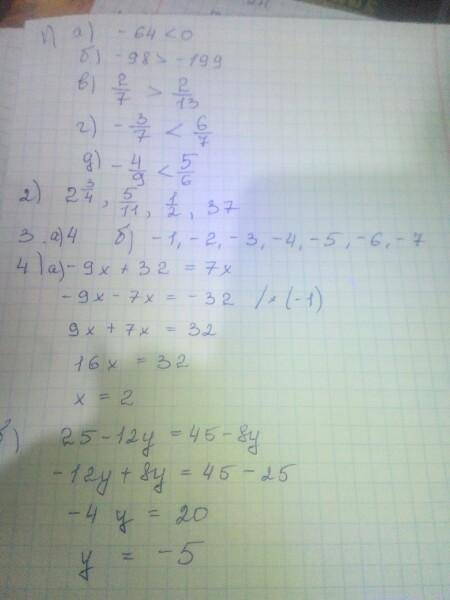 1) а) -64 < 0
б) -98 > -199
в) 2/7 > 2/13
г) -3/7 < 6/7
д) -4/9 < 5/6
2) 2 3/4, 5/11, 1/2, 37
3. а) 4 б) -1, -2, -3, -4, -5, -6, -7
4) а) -9x + 32 = 7x
-9x - 7x = -32 /×(-1)
9x + 7x = 32
16x = 32
x = 2
б) 25 - 12y = 45 - 8y
-12y + 8y = 45 - 25
-4 y = 20
y = -5